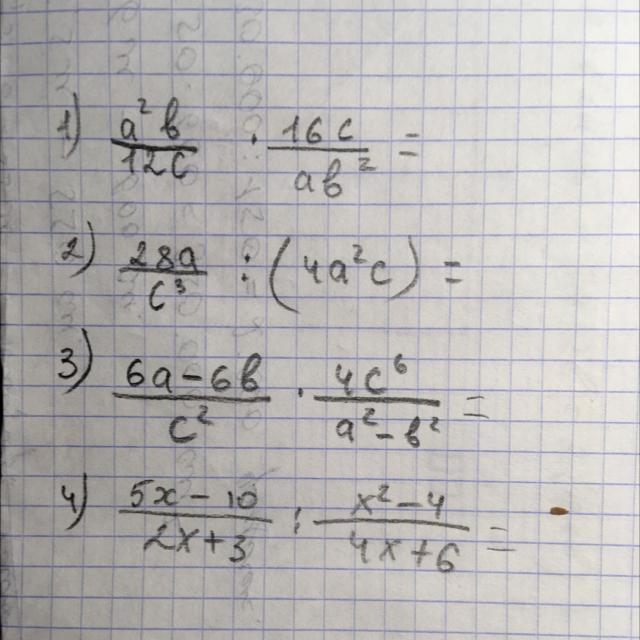 1) a²b/12c · 16c/ab² =
2) 28a/c³ : (4a²c) =
3) 6a-6b/c² · 4c⁶/a²-b² =
4) 5x-10/2x+3 : x²-4/4x+6 =